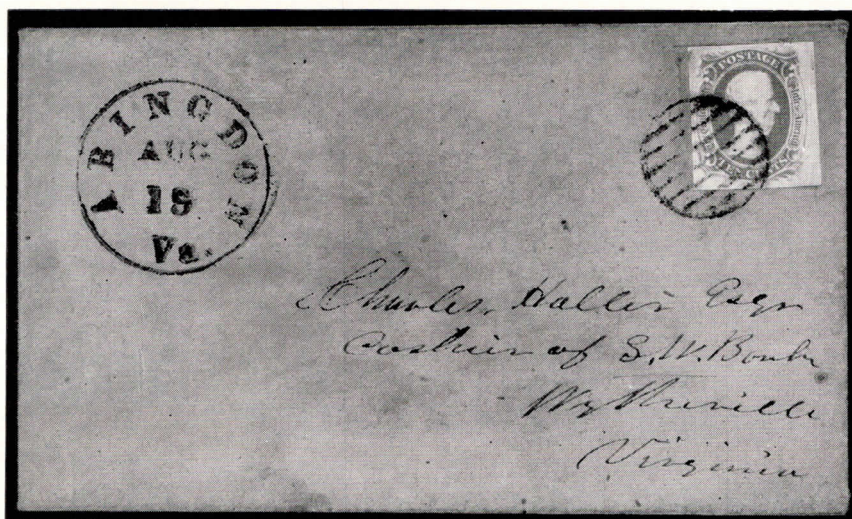 ABINGDON
AUG
19
Va.
POSTAGE
TEN CENTS
Charles Haller Esqr
Cashier of S.W. Bank
Wytheville
Virginia